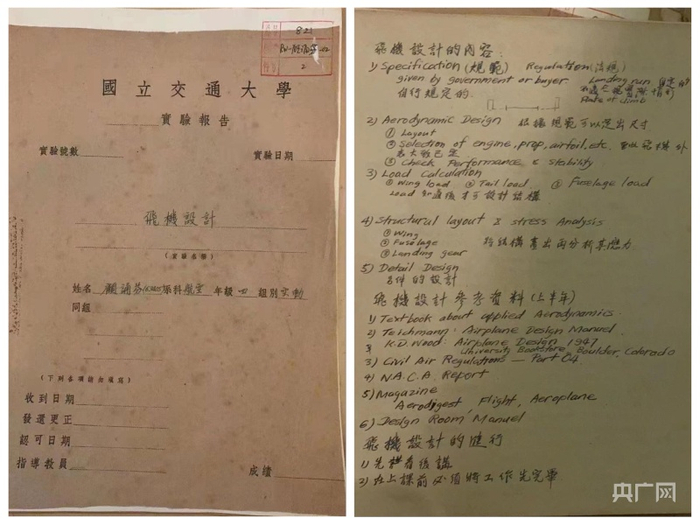 821
2
國立交通大學
實驗報告
實驗號數
實驗日期
飛機設計
(實驗名稱)
姓名 顧誦芬 系科 航空 年級 四 組別
同組
(下列各項請勿填寫)
收到日期
發還更正
認可日期
指導教員
成績
飛機設計的內容
1) Specification (規範) Regulation (法規)
given by government or buyer Landing run
自行規定的. Rate of climb
2) Aerodynamic Design 根據規範可以定出尺寸
① Layout
② Selection of engine, prop, airfoil, etc.
③ Check Performance & Stability
3) Load Calculation
① Wing load ② Tail load ③ Fuselage load
Load 知道後才可設計結構
4) Structural layout & stress Analysis
① Wing
② Fuselage
③ Landing gear
5) Detail Design
各件的設計
飛機設計參考資料 (上半年)
1) Textbook about applied Aerodynamics.
2) Teichmann: Airplane Design Manuel.
3 K.D. Wood: Airplane Design 1947
University Bookstore, Boulder, Colorado
3) Civil Air Regulations — Part 04
4) N.A.C.A. Report
5) Magazine
Aerodigest, Flight, Aeroplane
6) Design Room Manuel
飛機設計的進行
1) 先看後講
2) 在上課前必須將工作先完畢
央广网